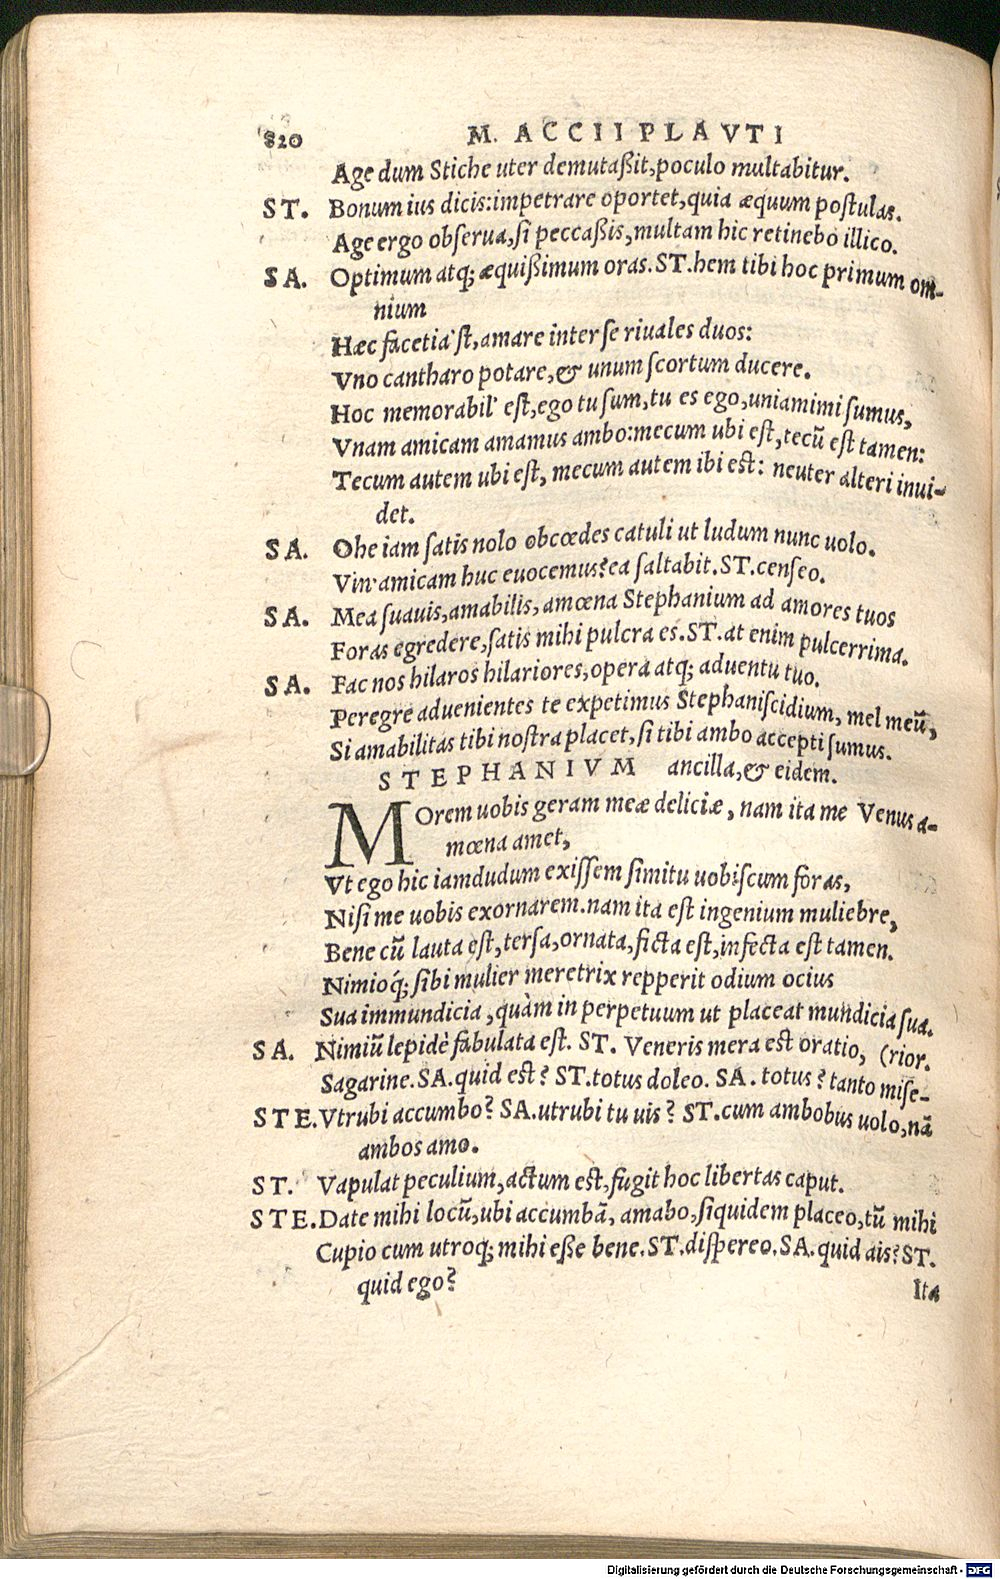 820 M. ACCII PLAVTI
Age dum Stiche uter demutaßit, poculo multabitur.
ST. Bonum ius dicis: impetrare oportet, quia æquum postulas.
Age ergo obserua, si peccaßis, multam hic retinebo illico.
SA. Optimum atq; æquißimum oras. ST. hem tibi hoc primum om-
nium
Hæc facetia'st, amare inter se riuales duos:
Vno cantharo potare, & unum scortum ducere.
Hoc memorabil' est, ego tu sum, tu es ego, uniamimi sumus,
Vnam amicam amamus ambo: mecum ubi est, tecũ est tamen:
Tecum autem ubi est, mecum autem ibi est: neuter alteri inui-
det.
SA. Ohe iam satis nolo obcœdes catuli ut ludum nunc uolo.
Vin' amicam huc euocemus? ea saltabit. ST. censeo.
SA. Mea suauis, amabilis, amœna Stephanium ad amores tuos
Foras egredere, satis mihi pulcra es. ST. at enim pulcerrima.
SA. Fac nos hilaros hilariores, opera atq; aduentu tuo.
Peregre aduenientes te expetimus Stephaniscidium, mel meũ,
Si amabilitas tibi nostra placet, si tibi ambo accepti sumus.
STEPHANIVM ancilla, & eidem.
MOrem uobis geram meæ deliciæ, nam ita me Venus a-
mœna amet,
Vt ego hic iamdudum exissem simitu uobiscum foras,
Nisi me uobis exornarem. nam ita est ingenium muliebre,
Bene cũ lauta est, tersa, ornata, ficta est, infecta est tamen.
Nimioq́; sibi mulier meretrix repperit odium ocius
Sua immundicia, quàm in perpetuum ut placeat mundicia sua.
SA. Nimiũ lepidè fabulata est. ST. Veneris mera est oratio, (rior.
Sagarine. SA. quid est? ST. totus doleo. SA. totus? tanto mise-
STE. Vtrubi accumbo? SA. utrubi tu uis? ST. cum ambobus uolo, nã
ambos amo.
ST. Vapulat peculium, actum est, fugit hoc libertas caput.
STE. Date mihi locũ, ubi accumbã, amabo, siquidem placeo, tũ mihi
Cupio cum utroq; mihi eße bene. ST. dispereo. SA. quid ais? ST.
quid ego? Ita
Digitalisierung gefördert durch die Deutsche Forschungsgemeinschaft - DFG